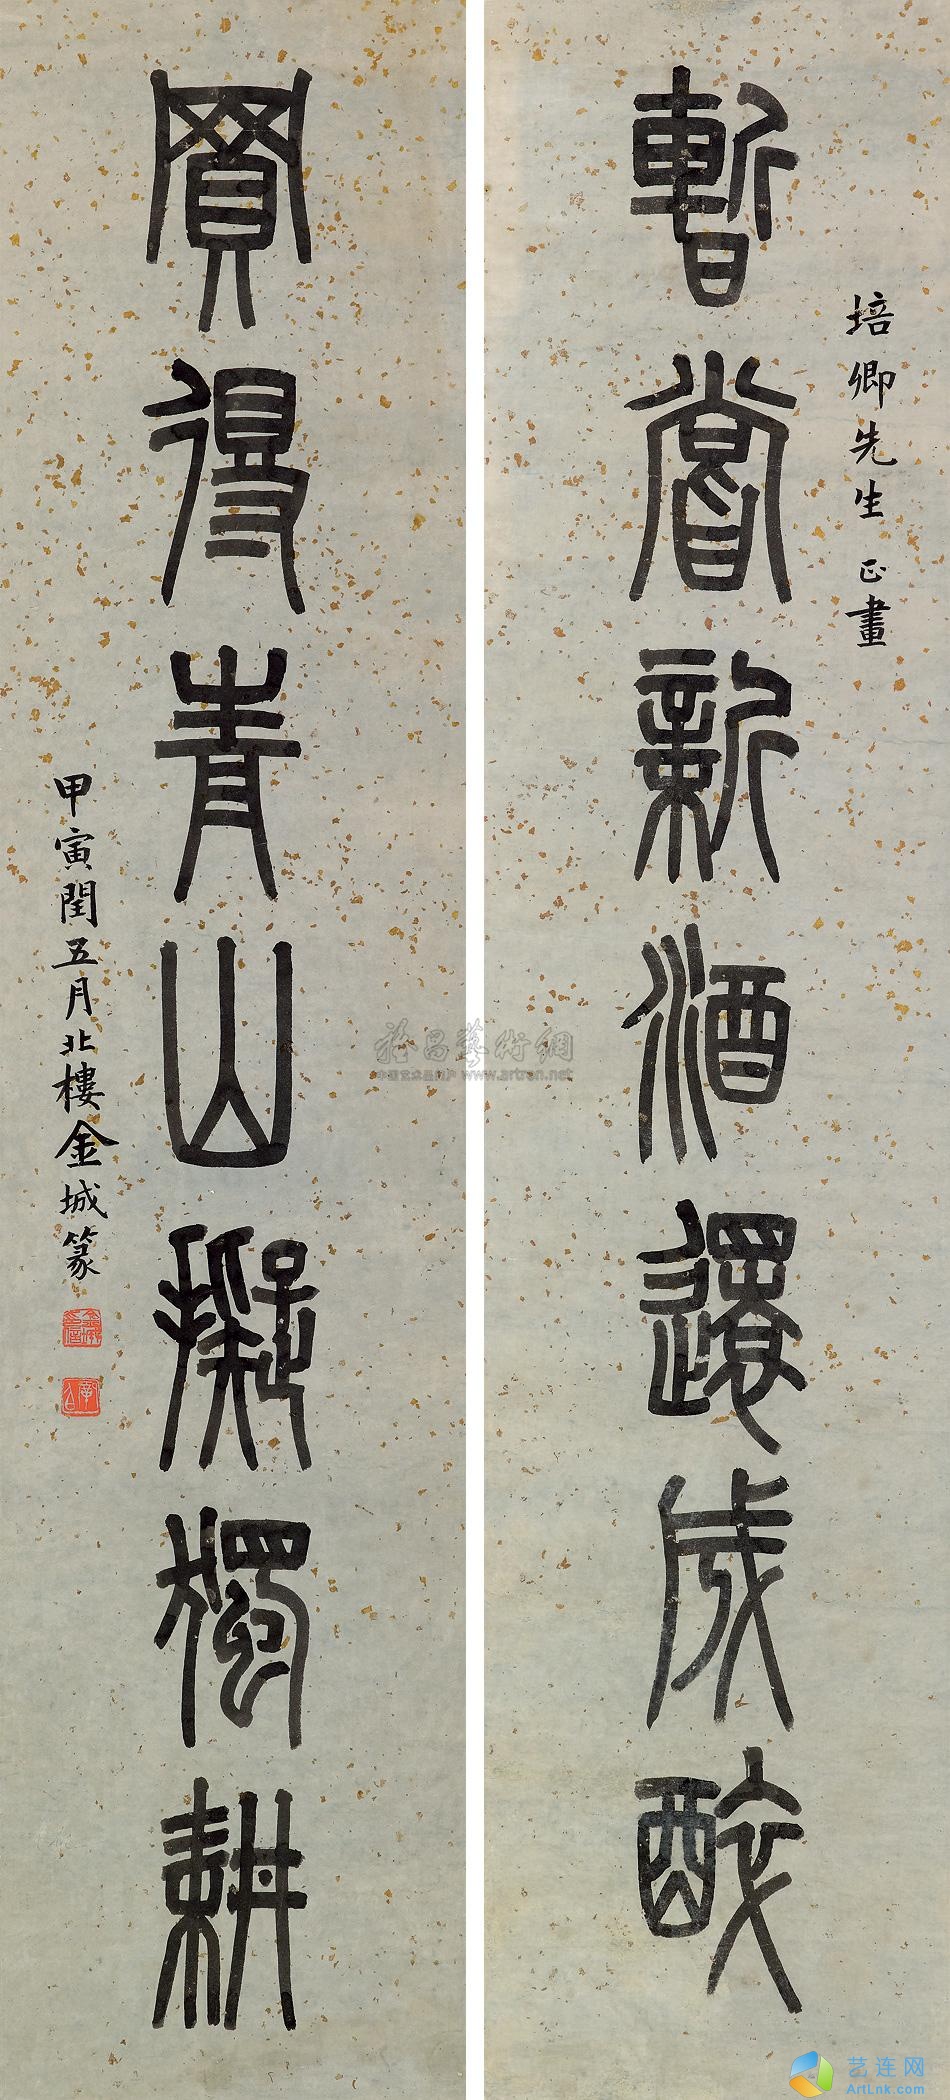 培卿先生正畫
暫嘗新酒還成醉
買得青山擬獨耕
甲寅閏五月北樓金城篆
雅昌藝術網
www.artron.net
艺连网
ArtLnk.com